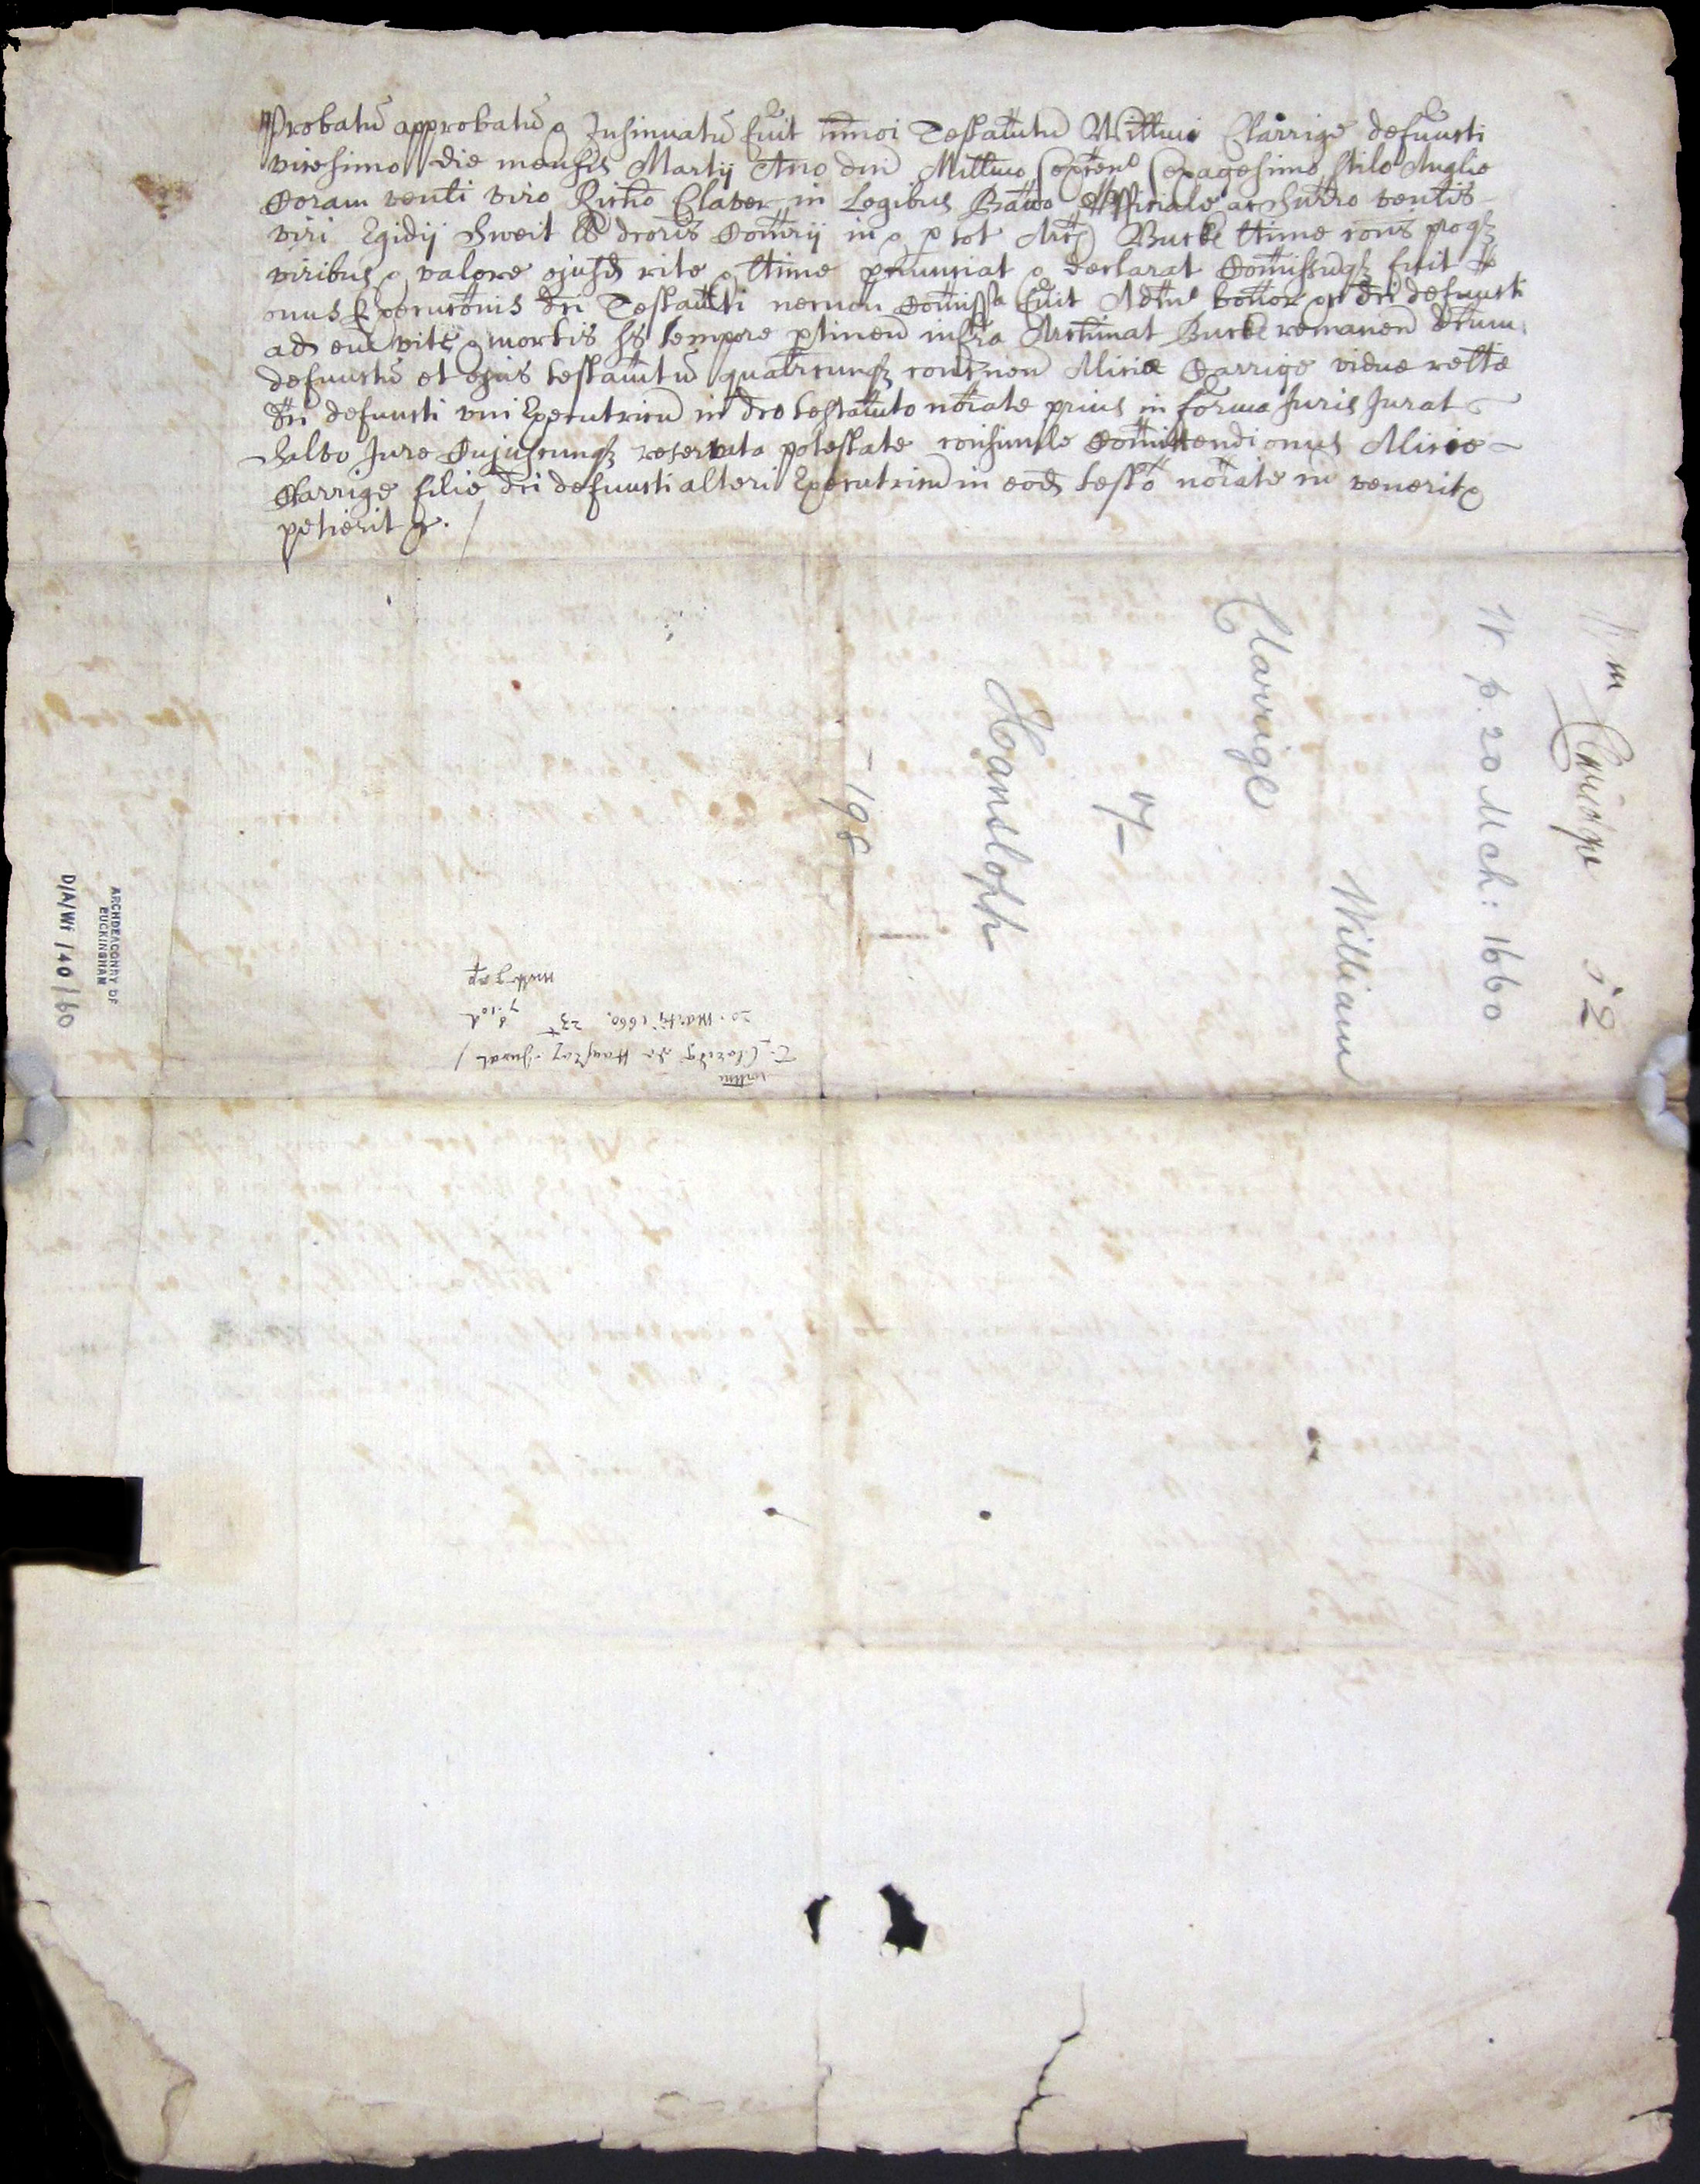 Probatũ approbatũ & Insinuatũ fuit hmõi Testamtũ Willmi Clarrige defuncti
vicesimo die mensis Martij Año dñi Millmo sexcenᵒ sexagesimo stilo Anglie
Coram venli viro Richõ Claver in Legibus Bacco Officiale ac Surro ventis
viri Egidij Sweit LL dcoris Comrij in & p tot Archd Bucks ltime cons proqꝫ
viribus & valore ejusd rite & ltime pñunciat & declarat Comissuqꝫ fuit
onus Execucõnis dci Testamti necnon Comissᵃ fuit Adtio bonor &c dci defuncti
ad eũ vite & mortis sue tempore ptinen infra Archinat Bucks remanen dcum
defunctũ et ejus testamtũ qualrcunqꝫ concnen Alicie Carrige vidue relte
dci defuncti uni Executricũ in dco testamto nõiate prius in forma Juris Jurat
Salvo Jure Cujuscunqꝫ reservata potestate consimile Comittendi onus Alicie
Clarrige filie dci defuncti alteri Executricũ in eod testo nõiate cũ venerit &
petierit &.
Wm Claridge 12
W. p. 20 Mch: 1660
William
Clarrige
of
Hansloph
- 198
willm
T. Claridg de Hanslop Jurat
20. Martij 1660. 23
7 10d
ARCHDEACONRY OF
BUCKINGHAM
D/A/Wf /40/60